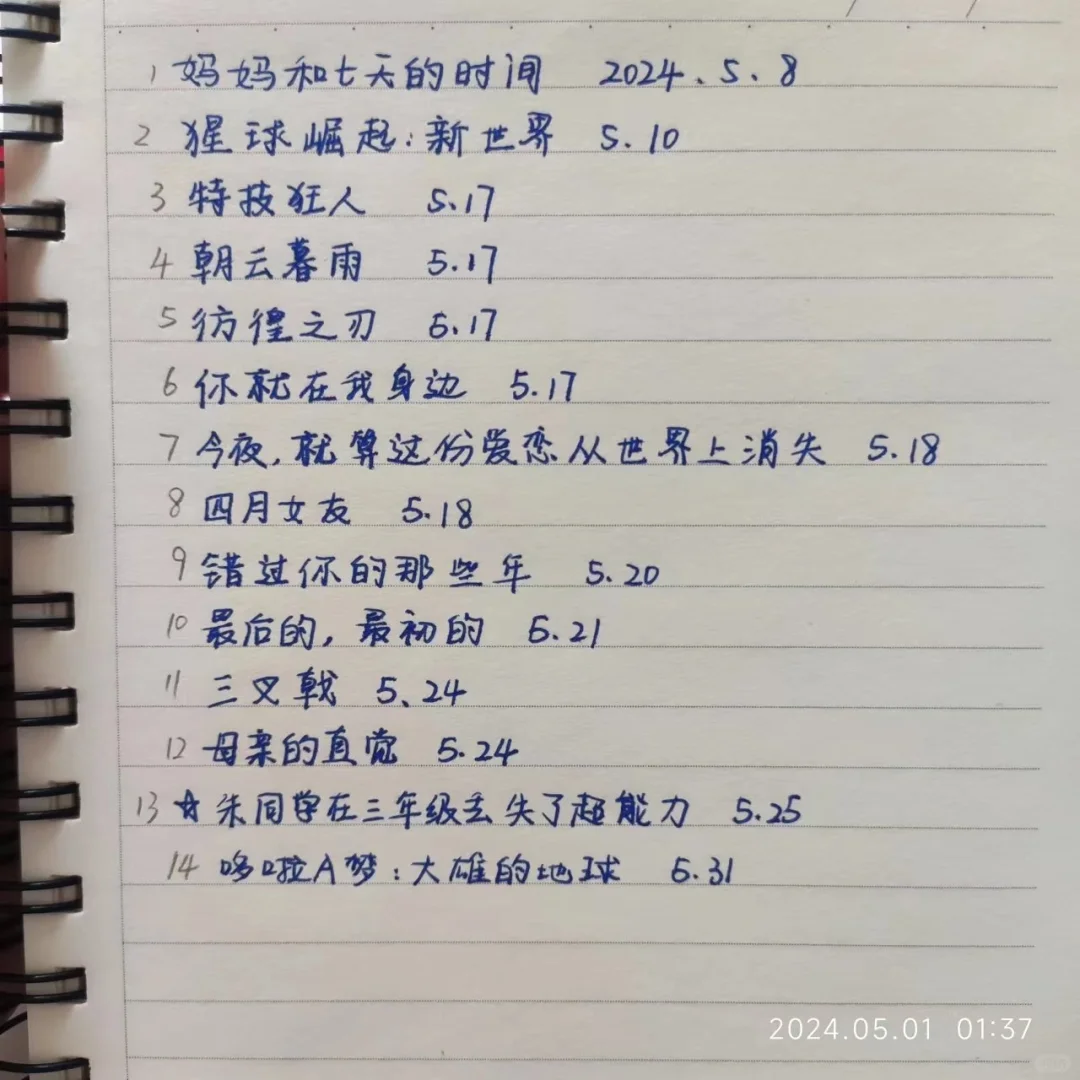 1 妈妈和七天的时间 2024.5.8
2 猩球崛起:新世界 5.10
3 特技狂人 5.17
4 朝云暮雨 5.17
5 彷徨之刃 5.17
6 你就在我身边 5.17
7 今夜,就算这份爱恋从世界上消失 5.18
8 四月女友 5.18
9 错过你的那些年 5.20
10 最后的,最初的 5.21
11 三叉戟 5.24
12 母亲的直觉 5.24
13 ☆朱同学在三年级丢失了超能力 5.25
14 哆啦A梦:大雄的地球 5.31
2024.05.01 01:37